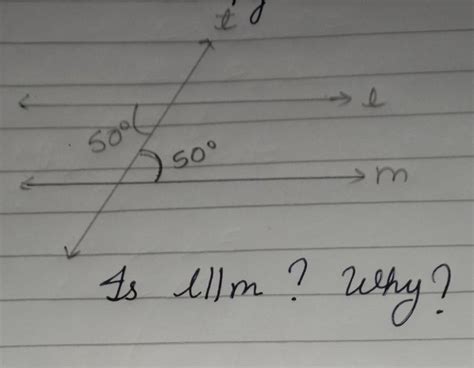 t
l
50°
50°
m
Is l||m ? Why?